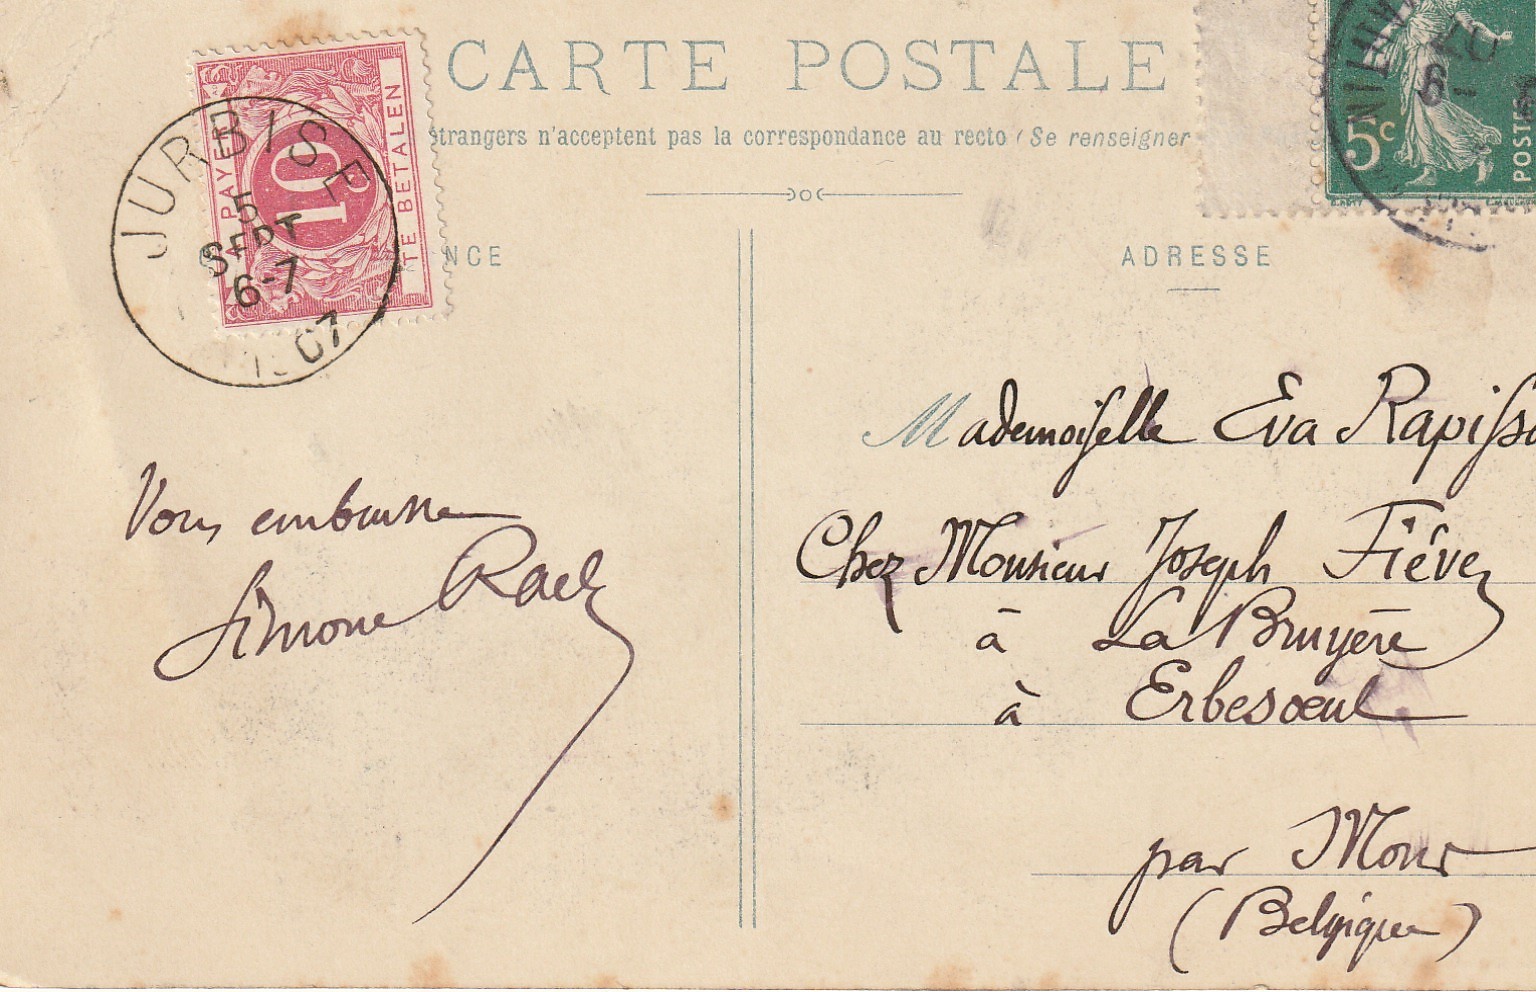 CARTE POSTALE
étrangers n'acceptent pas la correspondance au recto (Se renseigner
NCE
ADRESSE
PAYER
10
TE BETALEN
JURBISE
5
SEPT
6-7
07
5c
POSTES
07
6-
Vous embrasse
Simone Rael
Mademoiselle Eva
Chez Monsieur Joseph Fiévez
à La Bruyère
à Erbesoeul
par Mons
(Belgique)